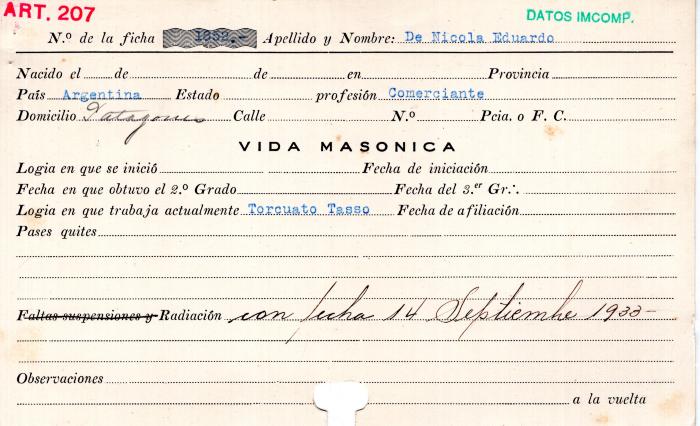 ART. 207
DATOS IMCOMP.
N.º de la ficha 1252.- Apellido y Nombre: De Nicola Eduardo
Nacido el de de en Provincia
País Argentina Estado profesión Comerciante
Domicilio Patagones Calle N.º Pcia. o F. C.
VIDA MASONICA
Logia en que se inició Fecha de iniciación
Fecha en que obtuvo el 2.º Grado Fecha del 3.er Gr∴
Logia en que trabaja actualmente Torcuato Tasso Fecha de afiliación
Pases quites
Faltas suspensiones y Radiación con fecha 14 Septiembe 1933-
Observaciones
a la vuelta